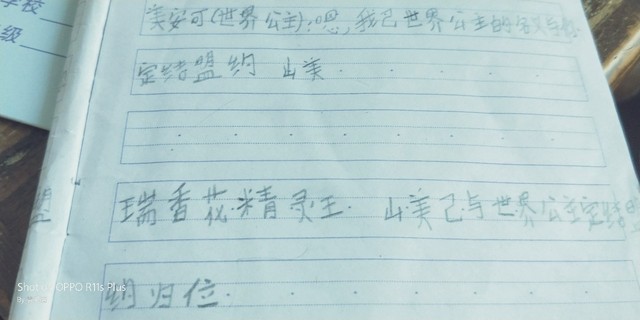 学校
级
美安可(世界公主):嗯,我已世界公主的名义与
定结盟约 山美
盟
瑞香花精灵王. 山美已与世界公主定结盟
约归位.
Shot on OPPO R11s Plus
By